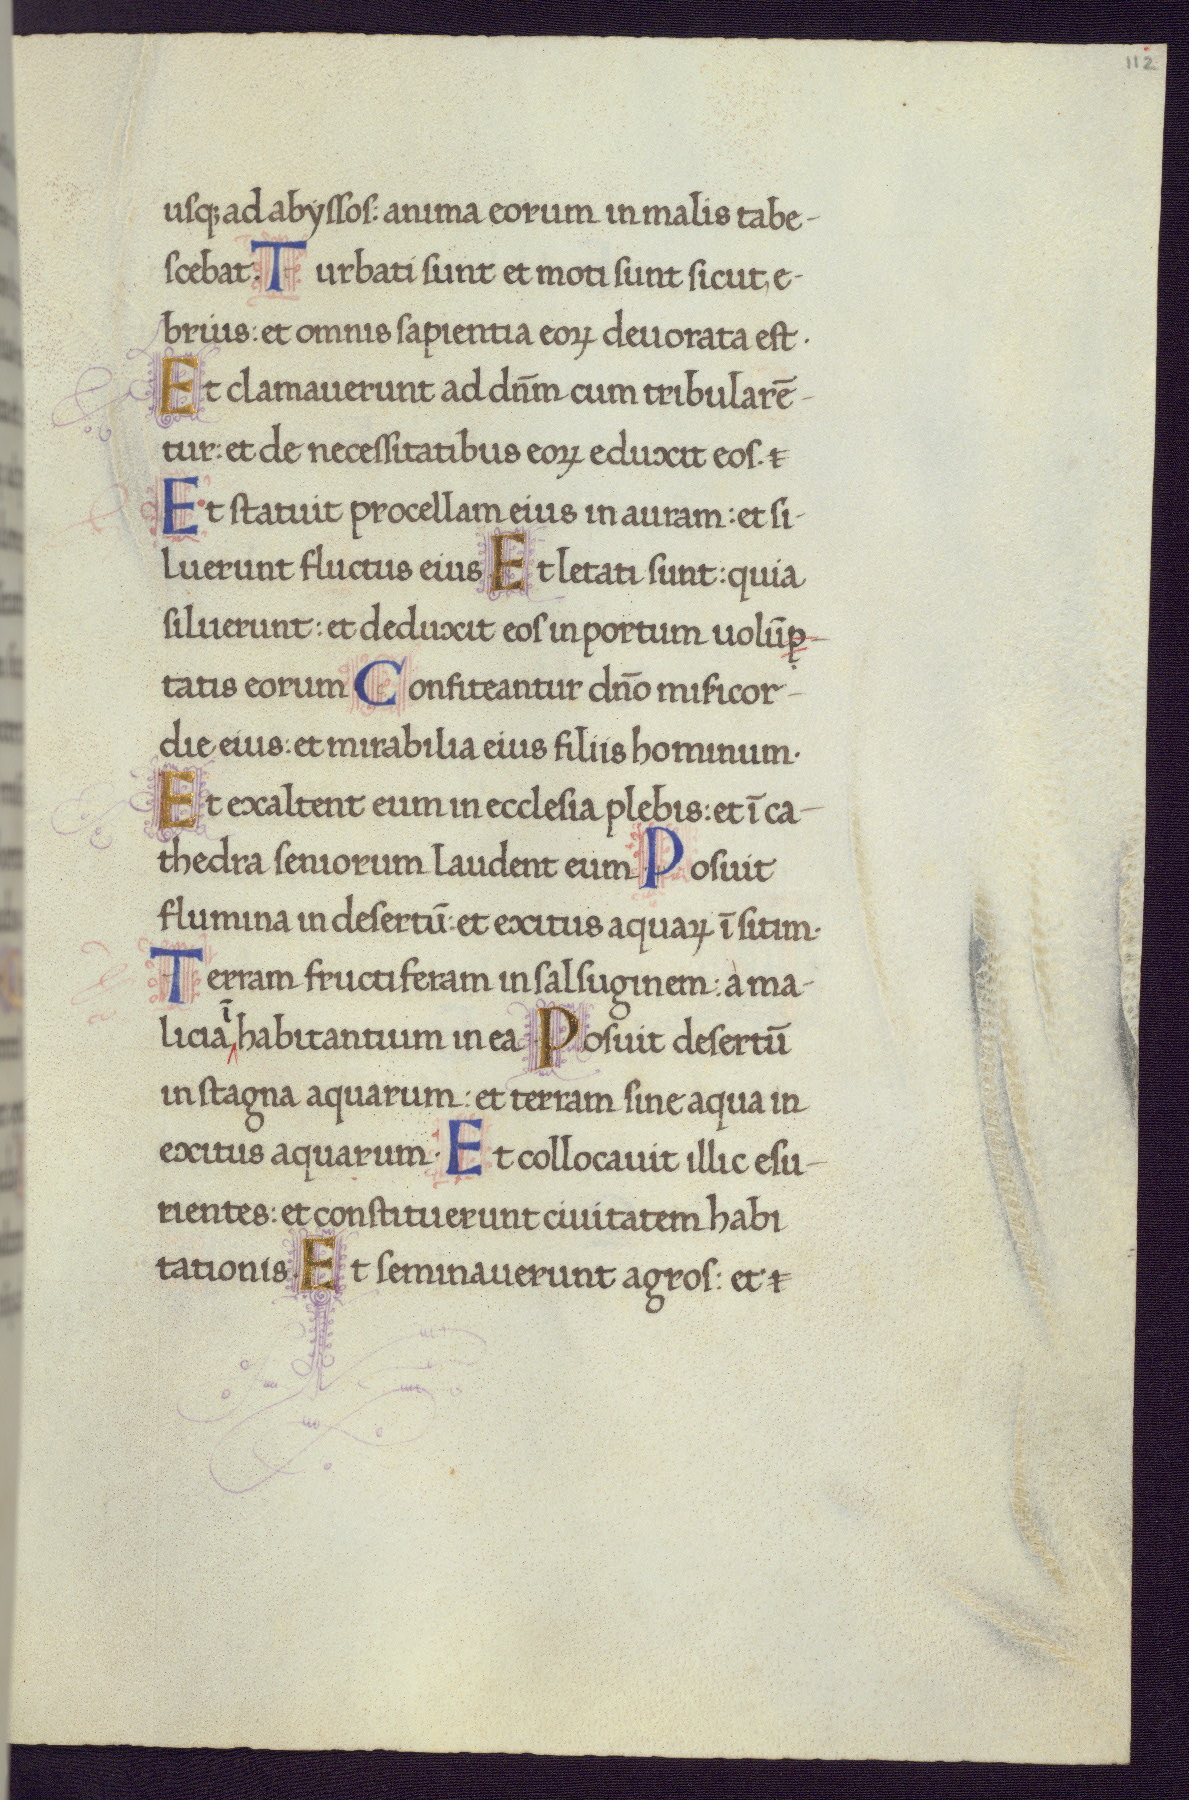 112
usq; ad abyssos: anima eorum in malis tabe-
scebat. Turbati sunt et moti sunt sicut e-
brius: et omnis sapientia eoꝝ deuorata est.
Et clamauerunt ad dn̄m cum tribularē-
tur: et de necessitatibus eoꝝ eduxit eos.
Et statuit procellam eius in auram: et si-
luerunt fluctus eius Et letati sunt: quia
siluerunt: et deduxit eos in portum uolūp-
tatis eorum Confiteantur dn̄o misicor-
die eius: et mirabilia eius filiis hominum.
Et exaltent eum in ecclesia plebis: et ī ca-
thedra seniorum laudent eum Posuit
flumina in desertū: et exitus aquaꝝ ī sitim.
Terram fructiferam in salsuginem: a ma-
licia ī habitantium in ea Posuit desertū
in stagna aquarum: et terram sine aqua in
exitus aquarum. Et collocauit illic esu-
rientes: et constituerunt ciuitatem habi
tationis. Et seminauerunt agros: et